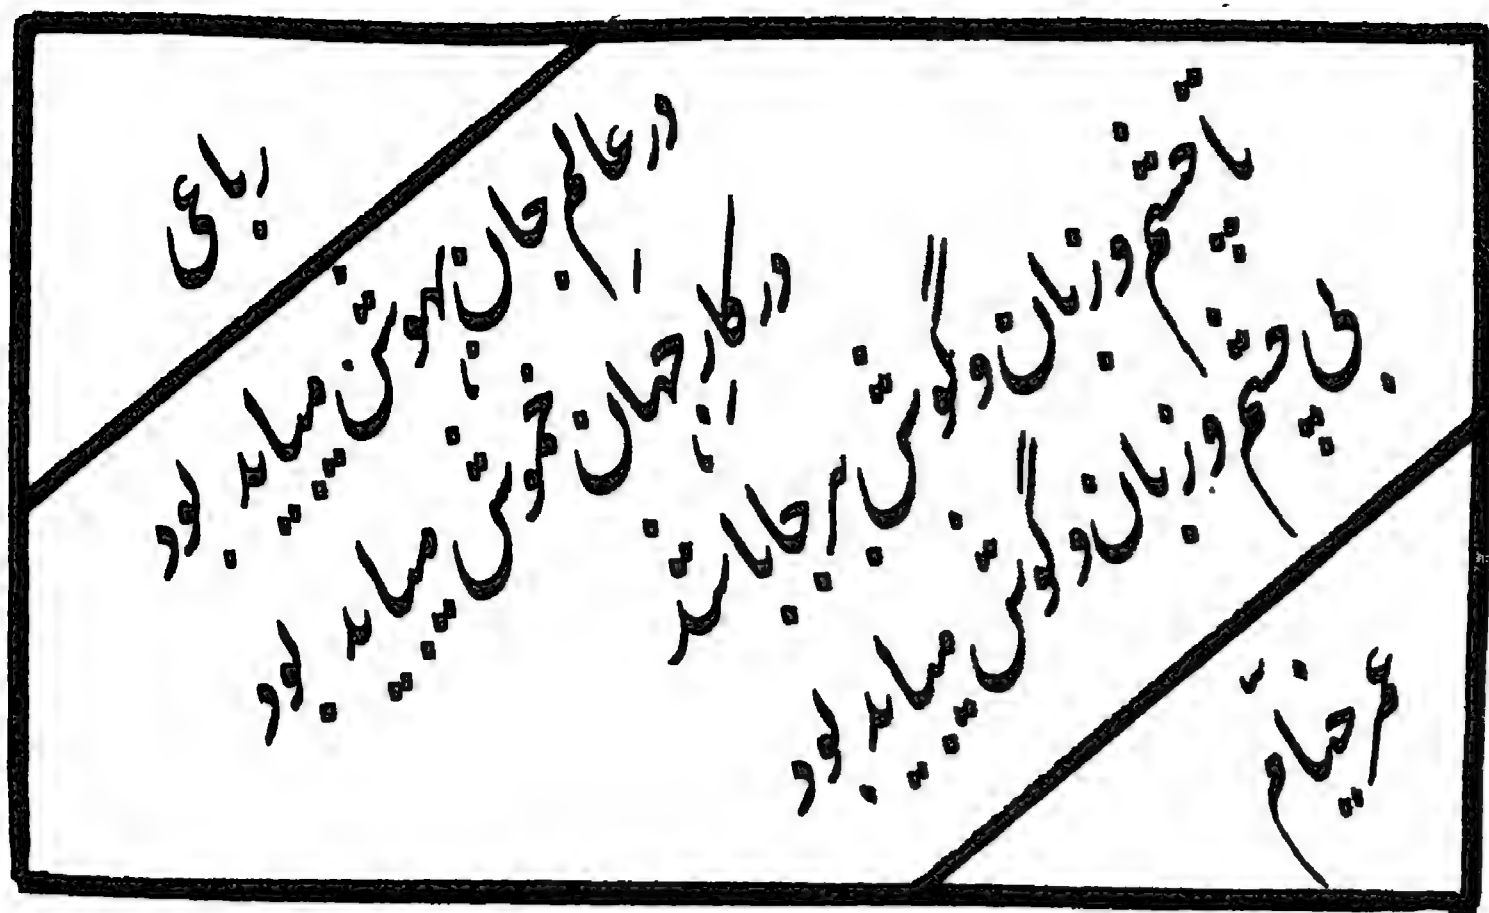 رباعی
در عالم جان بهوش میباید بود
در کار جهان خموش میباید بود
تا چشم و زبان و گوش بر جا باشد
بی چشم و زبان و گوش میباید بود
عمر خیّام